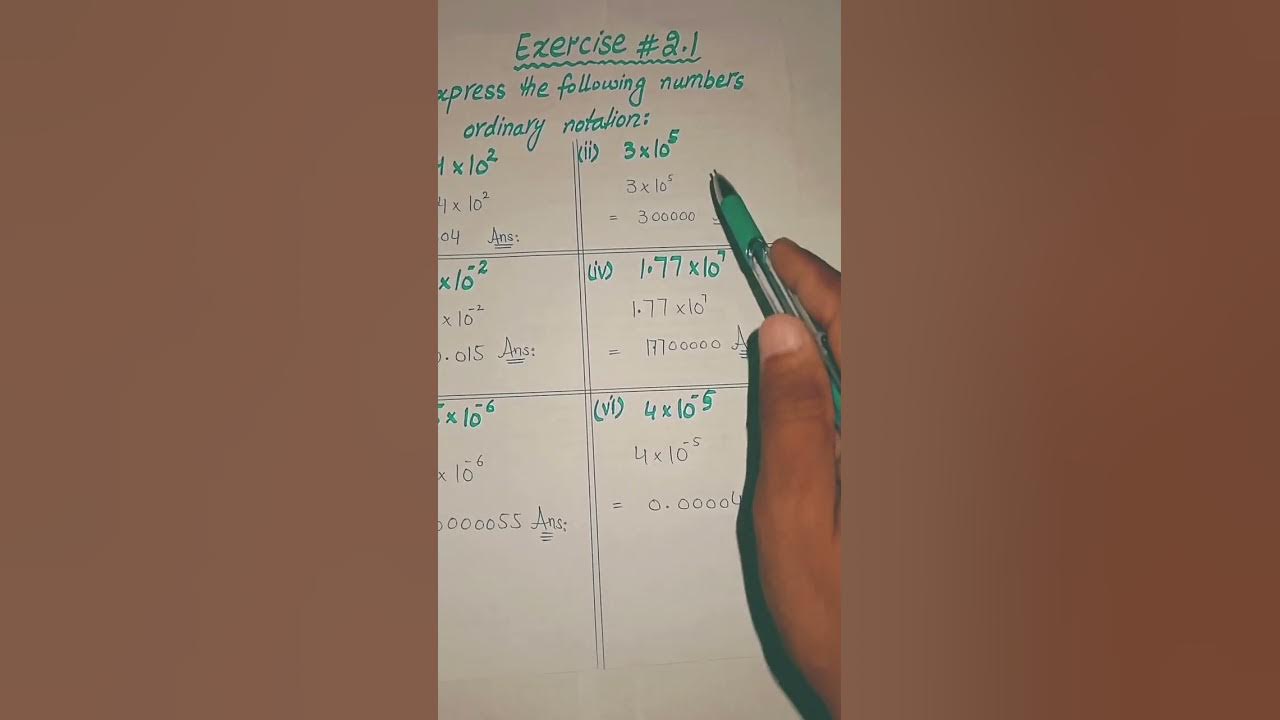 Exercise #2.1
xpress the following numbers
ordinary notation:
4 × 10²
4 × 10²
04 Ans:
(ii) 3×10⁵
3×10⁵
= 300000
× 10⁻²
× 10⁻²
0.015 Ans:
(iv) 1.77 ×10⁷
1.77 ×10⁷
= 17700000 A
5 × 10⁻⁶
× 10⁻⁶
0000055 Ans:
(vi) 4 × 10⁻⁵
4 × 10⁻⁵
= 0.00004